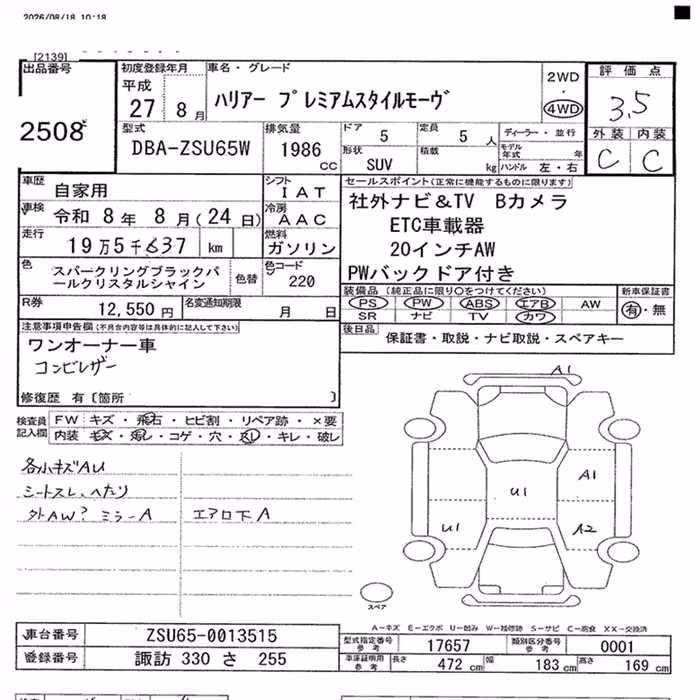 2026/08/18 10:18
[2139]
出品番号
2508
初度登録年月
平成
27 8月
車名・グレード
ハリアー プレミアムスタイルモーヴ
2WD
・
4WD
評価点
3.5
外装 内装
C C
型式
DBA-ZSU65W
排気量
1986
CC
ドア 5
定員 5 人
形状
SUV
積載
kg
ディーラー・並行
モデル年式 年
ハンドル 左・右
車歴
自家用
シフト
IAT
車検 令和 8年 8月(24日)
冷房
AAC
走行 19万5千637 km
燃料
ガソリン
色 スパークリングブラックパ
ールクリスタルシャイン
色替
色コード
220
R券 12,550円
名変通知期限
月 日
セールスポイント(正常に機能するものに限ります)
社外ナビ&TV Bカメラ
ETC車載器
20インチAW
PWバックドア付き
装備品(純正品に限り○をつけてください)
新車保証書
PS PW ABS エアB AW
SR ナビ TV カワ
有・無
後日品
保証書・取説・ナビ取説・スペアキー
注意事項申告欄(不具合内容等は具体的に記入して下さい)
ワンオーナー車
コンビレザー
修復歴 有〔箇所 〕
検査員
記入欄
FW キズ・飛石・ヒビ割・リペア跡・×要
内装 キズ・汚レ・コゲ・穴・スレ・キレ・破レ
各小キズAU
シートスレ、へたり
外AW? ミラーA
エアロ下A
A1
A1
U1
U1
A2
スペア
A−キズ E−エクボ U−凹み W−補修跡 S−サビ C−腐食 XX−交換済
車台番号 ZSU65-0013515
登録番号 諏訪 330 さ 255
型式指定番号
参考
17657
類別区分番号
参考
0001
車庫証明用
参考
長さ 472 cm 幅 183 cm 高さ 169 cm